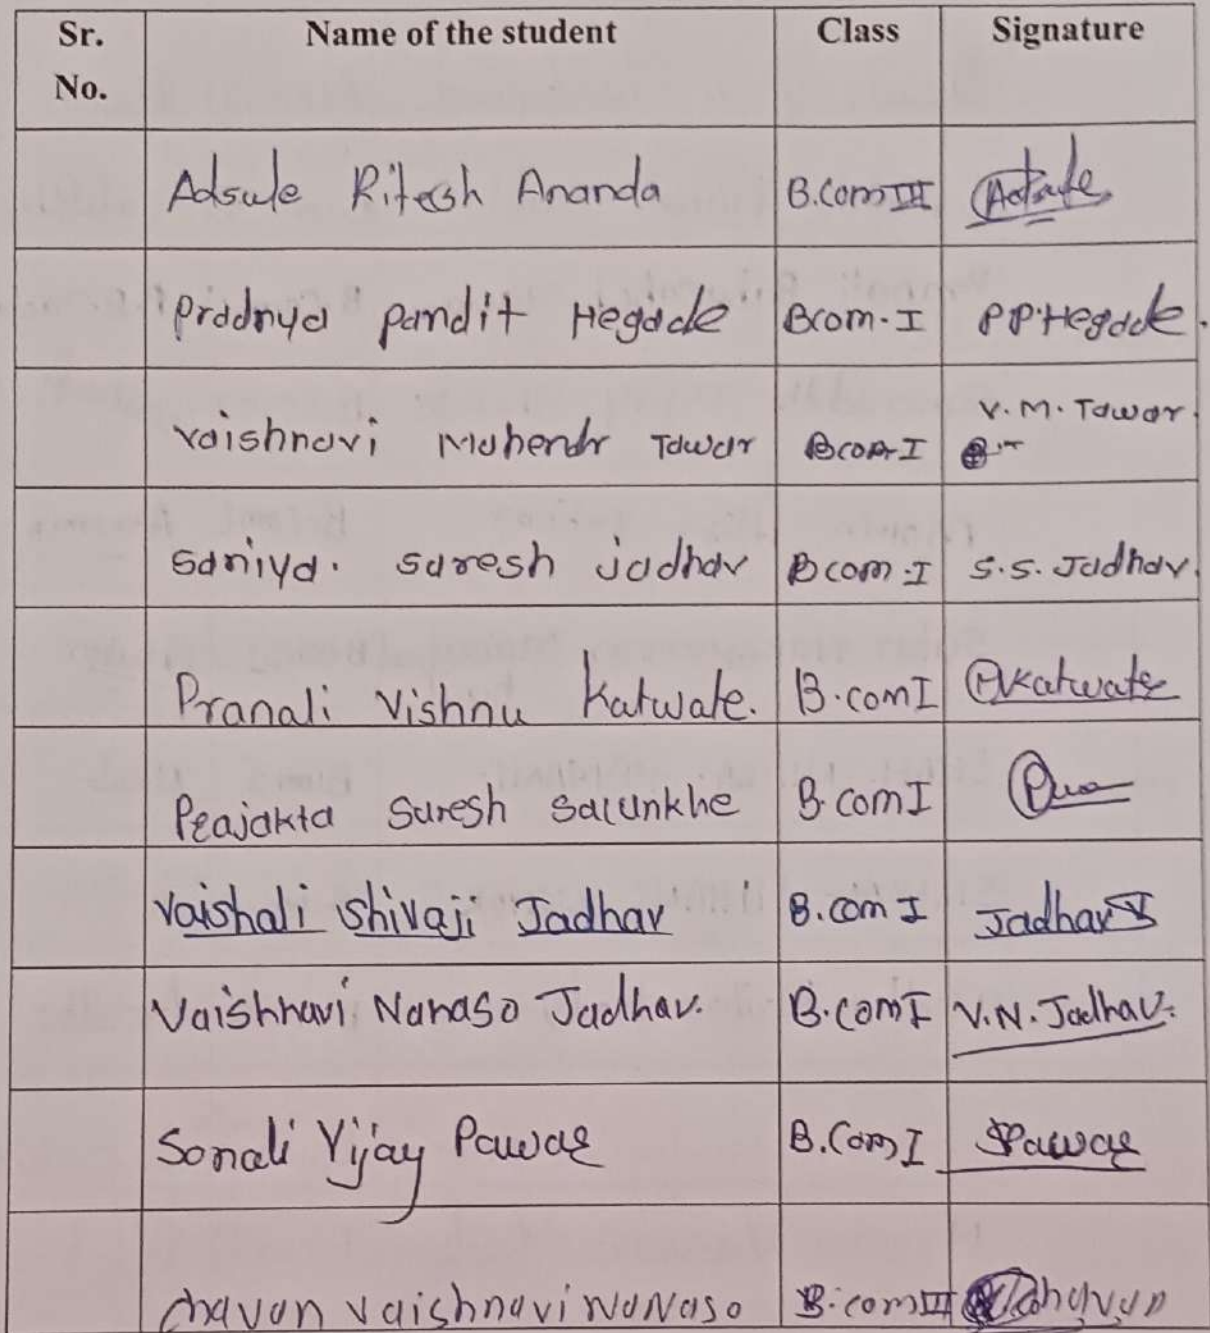 Sr. No. Name of the student Class Signature
Adsule Ritesh Ananda B.Com III Adsule
Pradnya pandit Hegade Bcom-I P P Hegade.
vaishnavi Mahendr Tawar Bcom-I V.M. Tawar.
saniya. suresh jadhav Bcom-I S.S. Jadhav.
Pranali Vishnu Katwate. B.com I PVKatwate
Prajakta Suresh Salunkhe B.com I
Vaishali Shivaji Jadhav B.com I Jadhav V
Vaishnavi Nanaso Jadhav. B.com I V.N. Jadhav.
Sonali Vijay Pawar B.Com I SPawar
chavan vaishnavi Nanaso B.com III chavan